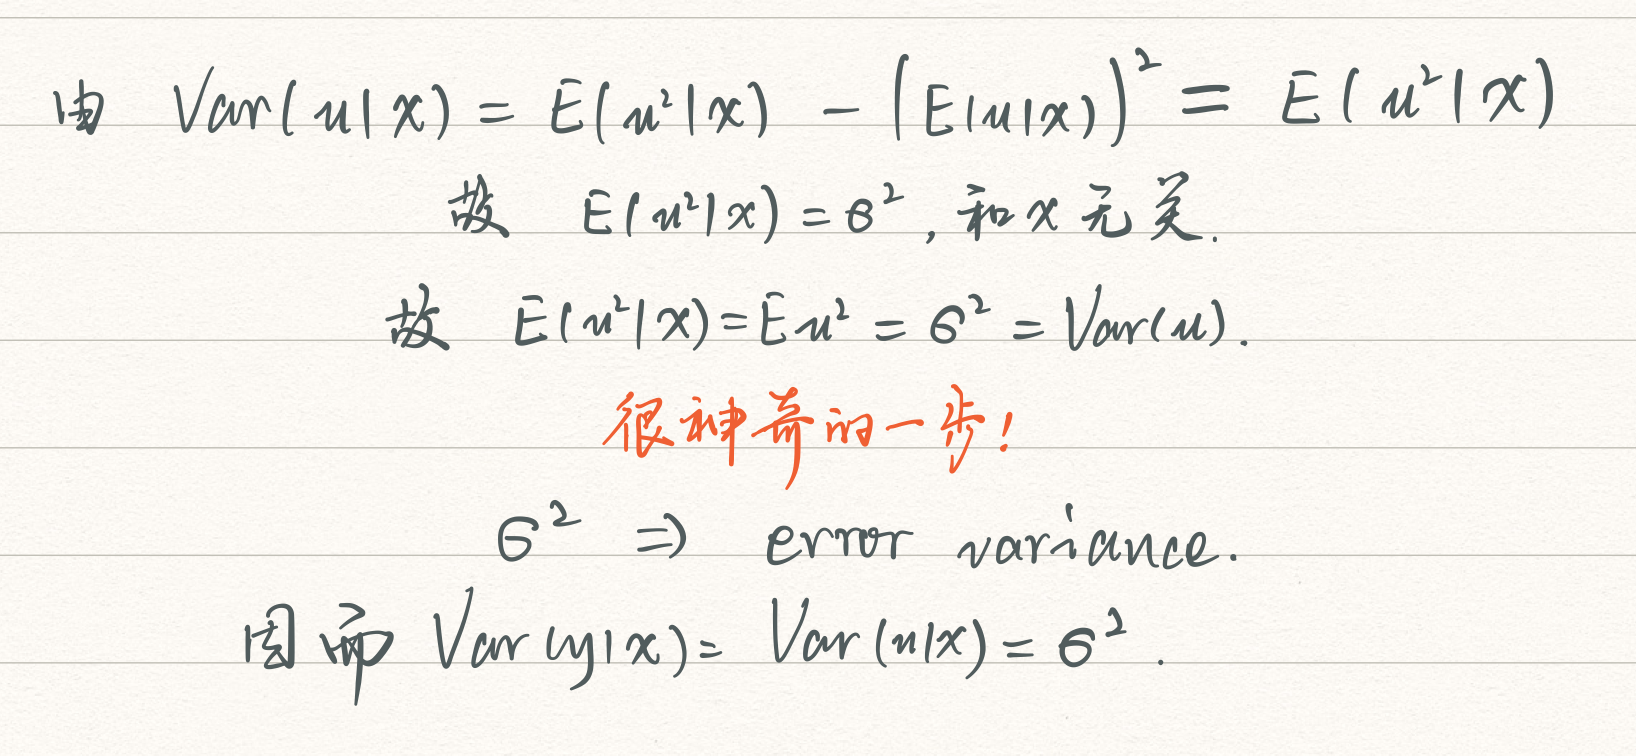 由 Var(u|x) = E(u²|x) - (E(u|x))² = E(u²|x)
故 E(u²|x) = σ², 和x无关.
故 E(u²|x) = Eu² = σ² = Var(u).
很神奇的一步!
σ² ⇒ error variance.
因而 Var(y|x) = Var(u|x) = σ².